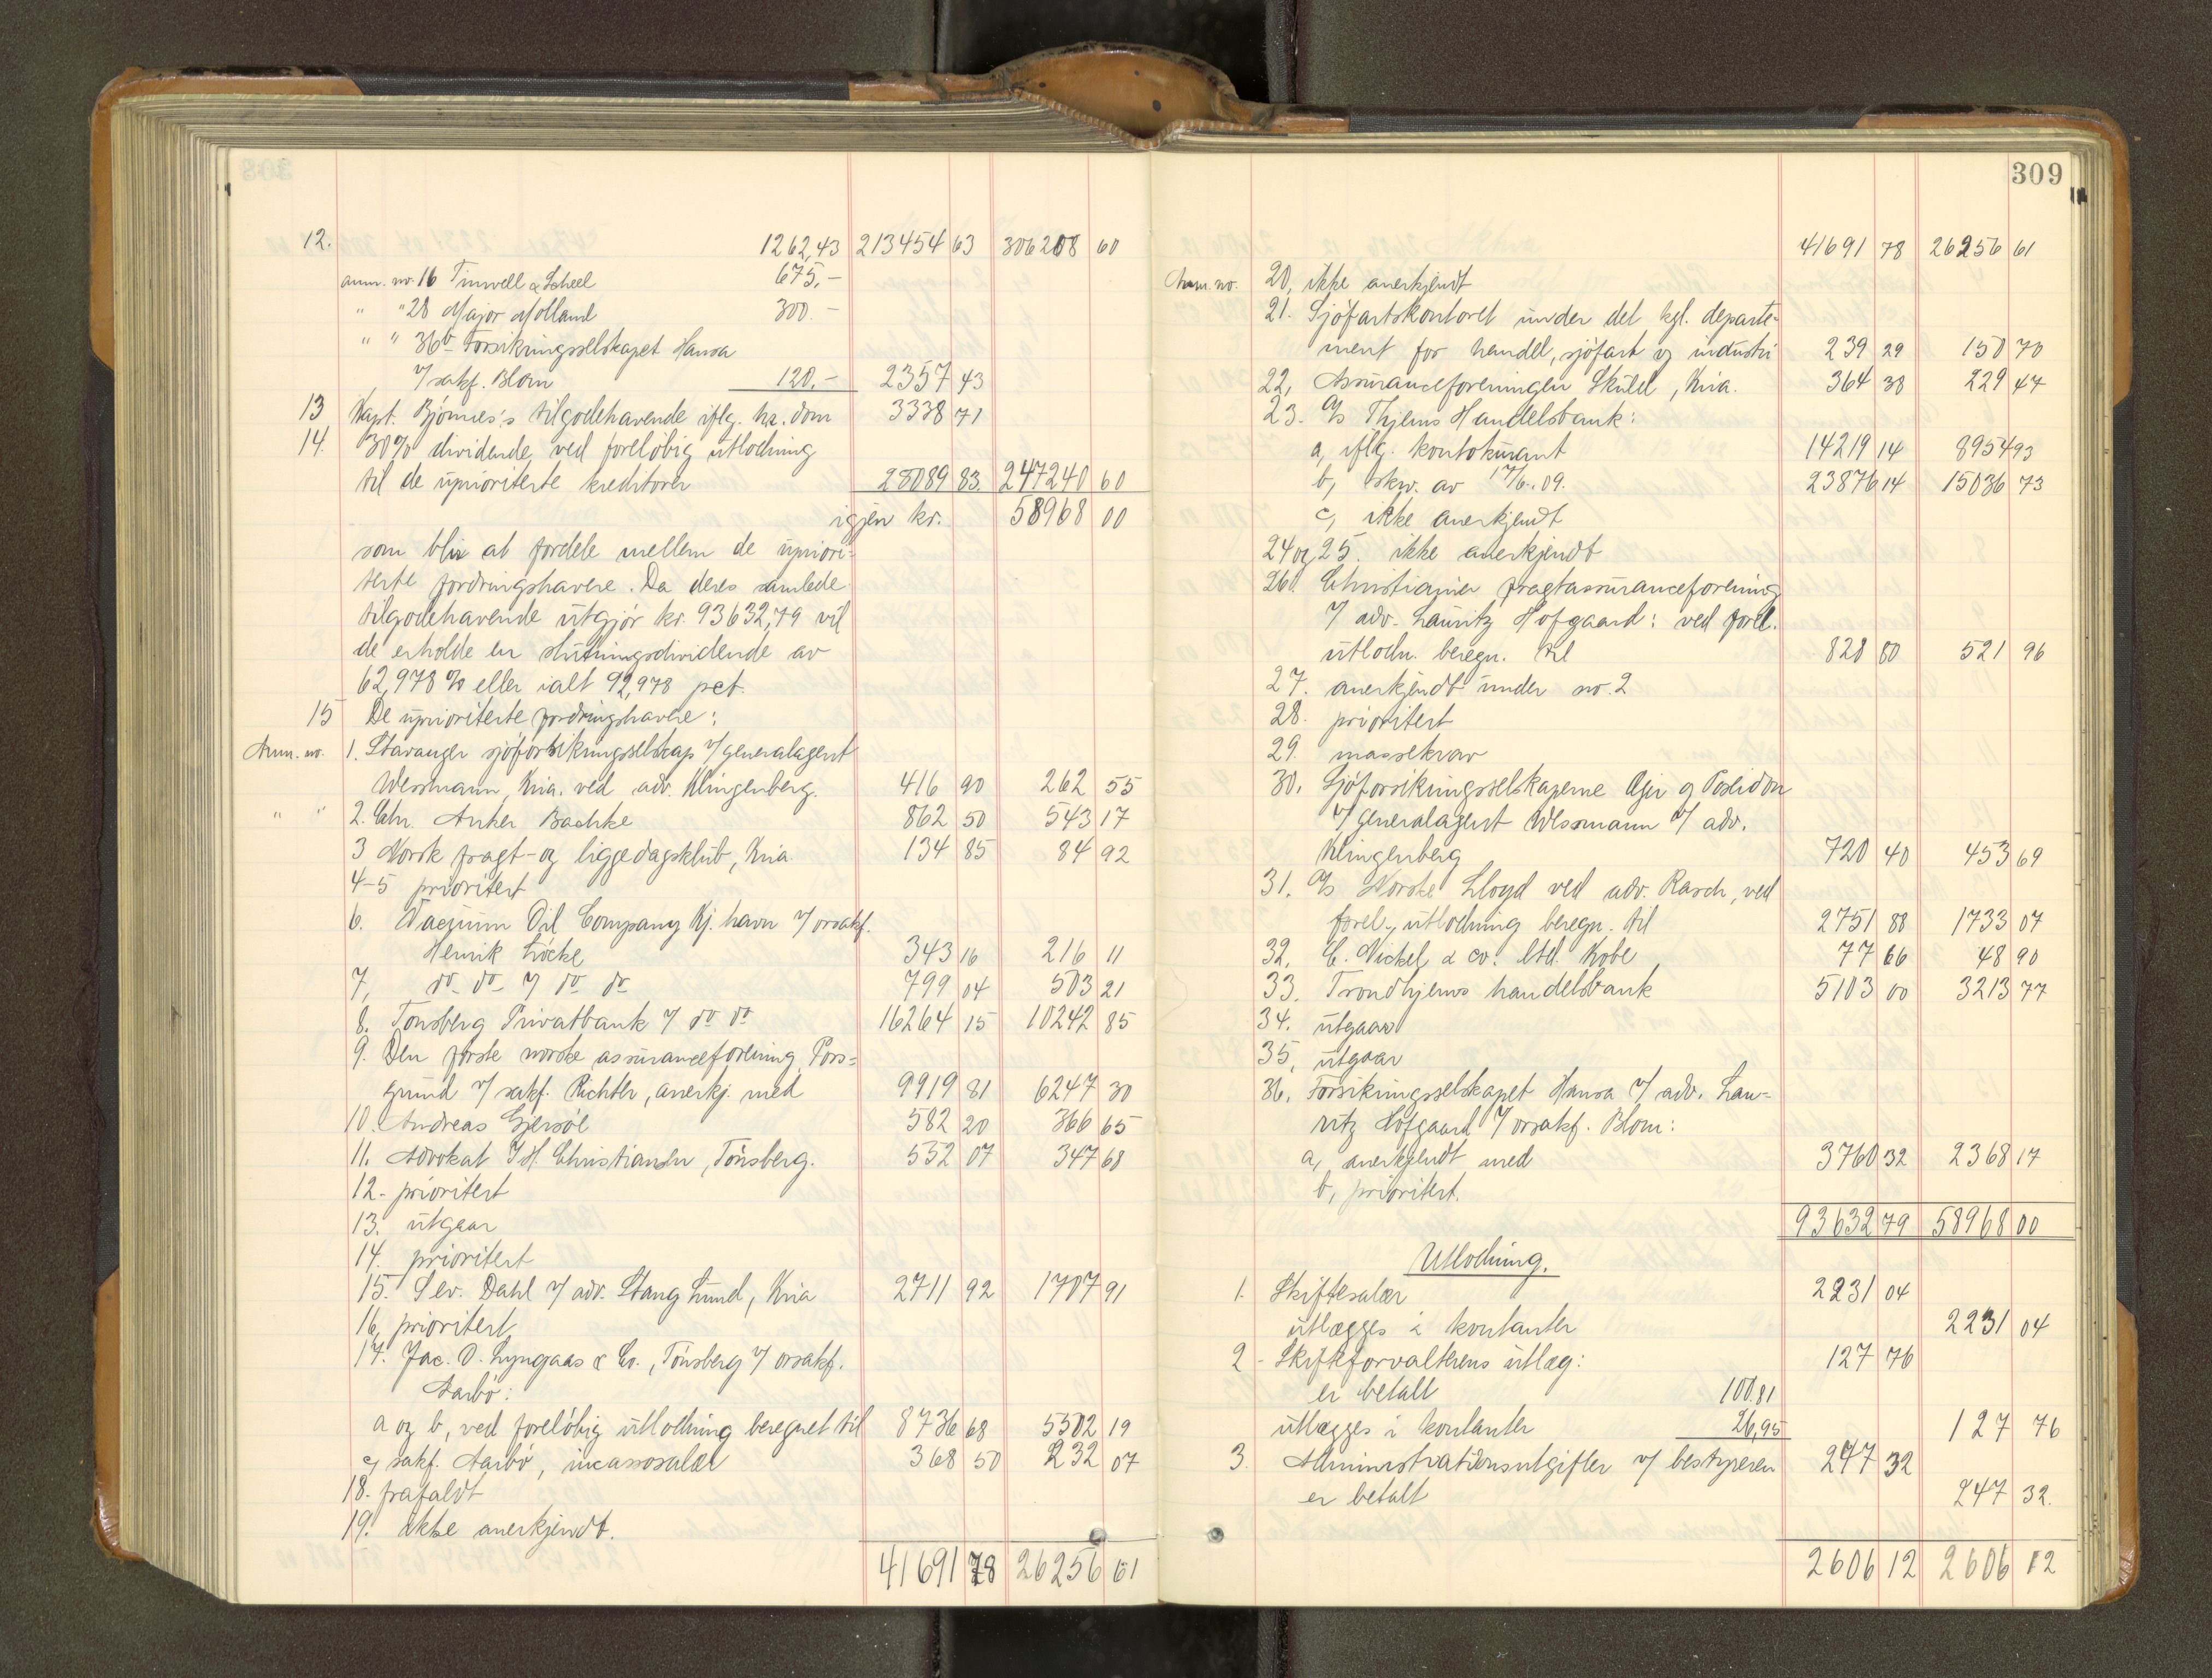 12. 1262,43 213454 63 306208 60
anm. no. 16 Tinwell & Scheel 675,-
" " 28 Major Molland 300.-
" " 36b Forsikringsselskapet Hansa
v/ sakf. Blom 120.- 2357 43
13 Kapt. Bjønnes's tilgodehavende iflg. hr. dom 3338 71
14. 30% dividende ved foreløbig utlodning
til de uprioriterte kreditorer 28089 83. 247240 60
igjen kr. 58968 00
som blir at fordele mellem de upriori-
terte fordringshavere. Da deres samlede
tilgodehavende utgjør kr. 93632,79 vil
de erholde en slutningsdividende av
62,978 % eller ialt 92,978 pct.
15 De uprioriterte fordringshavere:
Anm. no. 1. Stavanger sjøforsikringsselskap v/ generalagent
Wessmann, Kria. ved adv. Klingenberg. 416 90 262 55
" " 2. Chr. Anker Bachke 862 50 543 17
3 Norsk fragt- og liggedagsklub, Kria. 134 85 84 92
4-5 prioritert
6. Vacuum Oil Company Kj.havn v/ orsakf.
Henrik Løcke 343 16 216 11
7, do do v/ do do 799 04 503 21
8. Tønsberg Privatbank v/ do do 16264 15 10242 85
9. Den første norske assuranceforening, Pors-
grund v/ sakf. Richter, anerkj. med 9919 81 6247 30
10. Andreas Gjersøe 582 20 366 65
11. Advokat J.H. Christiansen, Tønsberg. 552 07 347 68
12. prioritert
13. utgaar
14. prioritert
15. Sev. Dahl v/ adv. Stang Lund, Kria 2711 92 1707 91
16, prioritert
17. Jac. O. Lyngaas & Co., Tønsberg v/ orsakf.
Aarbø:
a og b, ved foreløbig utlodning beregnet til 8736 68 5502 19
c, sakf. Aarbø, incassosalær 368 50 232 07
18. frafaldt
19. ikke anerkjendt.
41691 78 26256 61
309
41691 78 26256 61
Anm. no. 20, ikke anerkjendt
21. Sjøfartskontoret under det kgl. departe-
ment for handel, sjøfart og industri 239 29 150 70
22, Assuranceforeningen Skuld, Kria. 364 38 229 47
23. A/s Thjems Handelsbank:
a, iflg. kontokurant 14219 14 8954 93
b, skr. av 17/6.09. 23876 14 15036 73
c, ikke anerkjendt
24 og 25. ikke anerkjendt
26. Christiania fragtassuranceforening
v/ adv. Lauritz Hofgaard: ved forel.
utlodn. beregn. til 828 80 521 96
27. anerkjendt under no. 2
28. prioritert
29. massekrav
30. Sjøforsikringsselskaperne Ægir og Poseidon
v/ generalagent Wessmann v/ adv.
Klingenberg 720 40 453 69
31. A/s Norske Lloyd ved adv. Rasch, ved
forel. utlodning beregn. til 2751 88 1733 07
32. C. Nickel & co. ltd. Kobe 77 66 48 90
33. Trondhjems handelsbank 5103 00 3213 77
34. utgaar
35, utgaar
36. Forsikringsselskapet Hansa v/ adv. Lau-
ritz Hofgaard v/ orsakf. Blom:
a, anerkjendt med 3760 32 2368 17
b, prioritert.
93632 79 58968 00
Utlodning.
1. Skiftesalær 2231 04
utlægges i kontanter 2231 04
2 - Skifteforvalterens utlæg: 127 76
er betalt 100.81
utlægges i kontanter 26,95 127 76
3. Administrationsutgifter v/ bestyreren 247 32
er betalt 247 32.
2606 12 2606 12